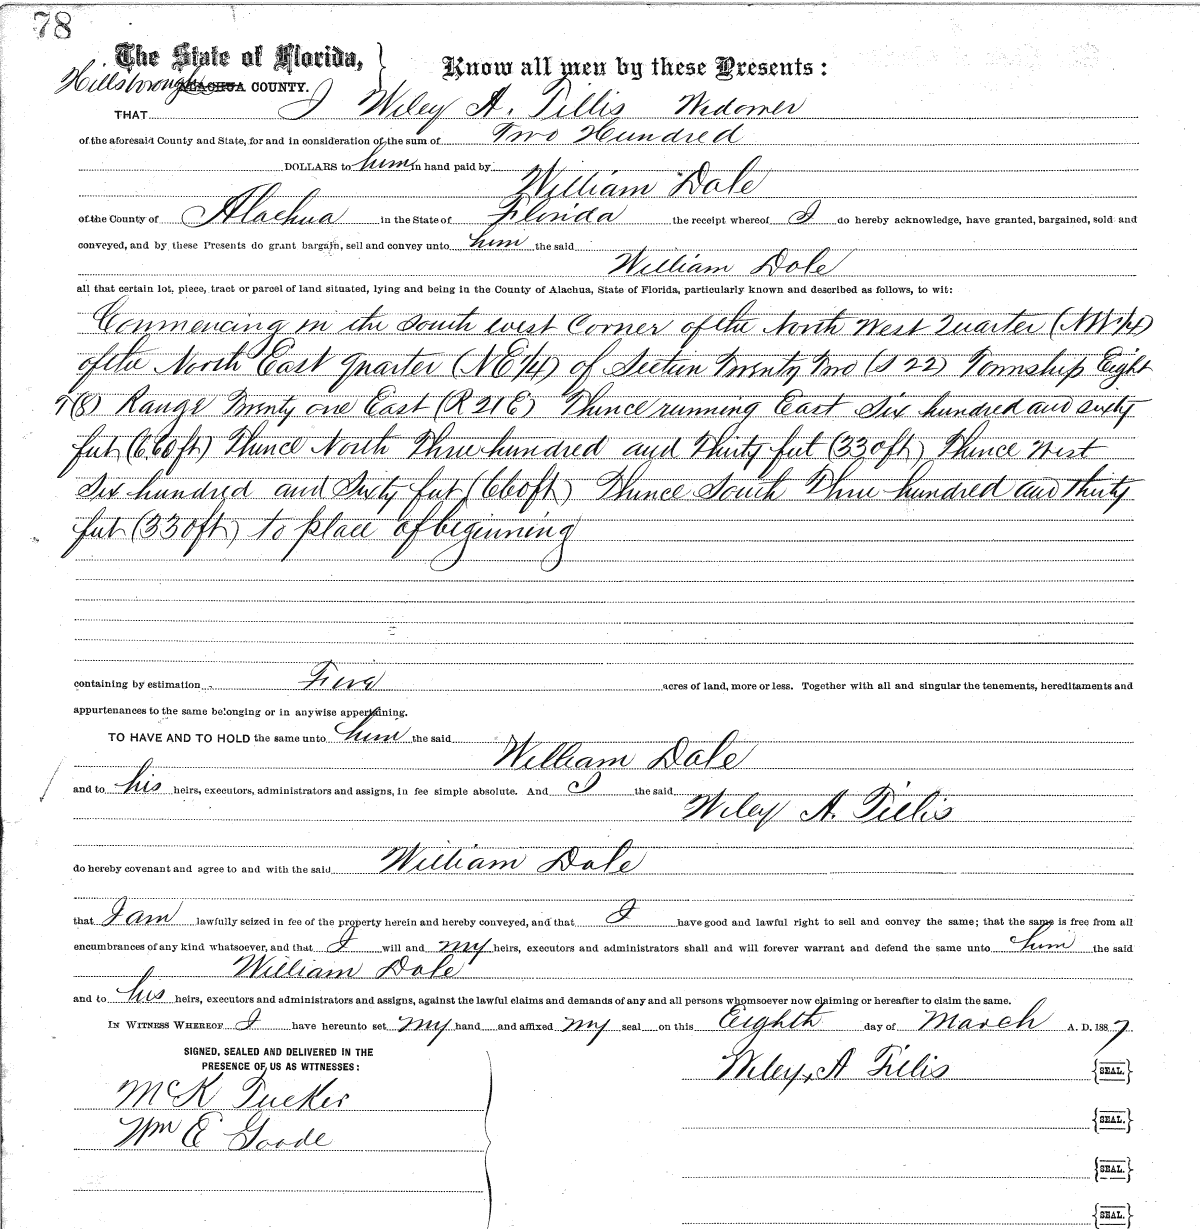 78
The State of Florida,
Know all men by these Presents:
Hillsborough ALACHUA COUNTY.
THAT I Wiley A. Tillis Widower
of the aforesaid County and State, for and in consideration of the sum of Two Hundred
DOLLARS to him in hand paid by
William Dale
of the County of Alachua in the State of Florida the receipt whereof I do hereby acknowledge, have granted, bargained, sold and
conveyed, and by these Presents do grant bargain, sell and convey unto him the said
William Dale
all that certain lot, piece, tract or parcel of land situated, lying and being in the County of Alachua, State of Florida, particularly known and described as follows, to wit:
Commencing in the South west Corner of the North West Quarter (NW 1/4)
of the North East Quarter (NE 1/4) of Section Twenty Two (S 22) Township Eight
T(8) Range Twenty one East (R 21 E) Thence running East Six hundred and sixty
feet (660 ft) Thence North Three hundred and Thirty feet (330 ft) Thence West
Six hundred and Sixty feet (660 ft) Thence South Three hundred and thirty
feet (330 ft) to place of beginning
containing by estimation Five acres of land, more or less. Together with all and singular the tenements, hereditaments and
appurtenances to the same belonging or in anywise appertaining.
TO HAVE AND TO HOLD the same unto him the said
William Dale
and to his heirs, executors, administrators and assigns, in fee simple absolute. And I the said
Wiley A. Tillis
do hereby covenant and agree to and with the said William Dale
that I am lawfully seized in fee of the property herein and hereby conveyed, and that I have good and lawful right to sell and convey the same; that the same is free from all
encumbrances of any kind whatsoever, and that I will and my heirs, executors and administrators shall and will forever warrant and defend the same unto him the said
William Dale
and to his heirs, executors and administrators and assigns, against the lawful claims and demands of any and all persons whomsoever now claiming or hereafter to claim the same.
IN WITNESS WHEREOF I have hereunto set my hand and affixed my seal on this Eighth day of March A. D. 1887
SIGNED, SEALED AND DELIVERED IN THE
PRESENCE OF US AS WITNESSES:
Wiley A Tillis {SEAL.}
McK Tucker
{SEAL.}
Wm E Goode
{SEAL.}
{SEAL.}